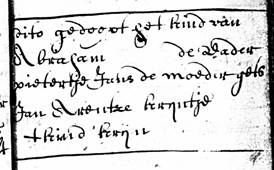 dito gedoopt het kind van
Abraham de vader
pietertje Jans de moeder gets
Jan Arentse krijntje
t kind krijn